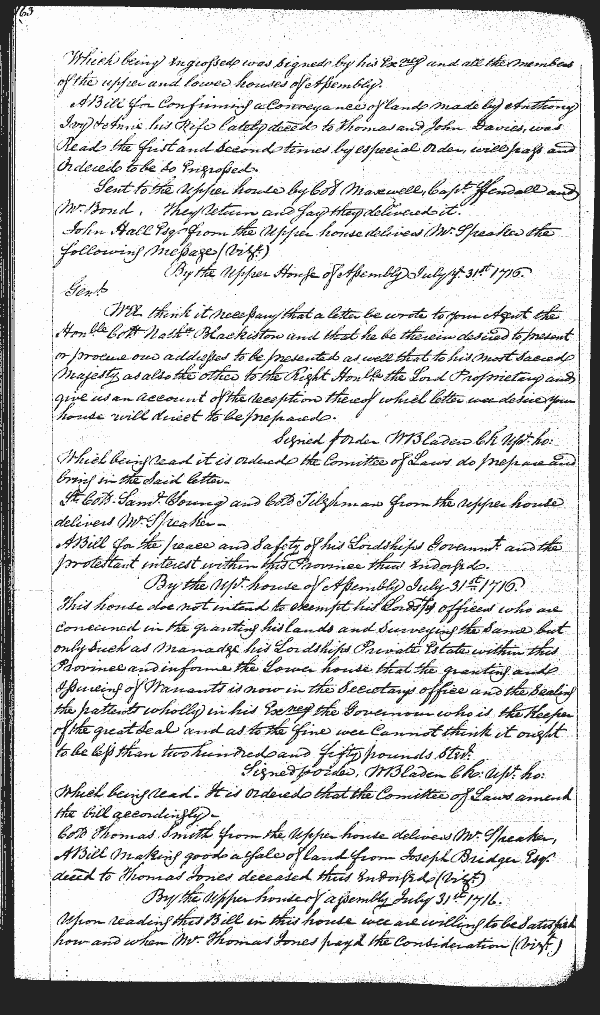 63
Which being Ingrossed was Signed by his Excncy and all the members
of the upper and lower houses of Assembly.
A Bill for Confirming a Conveyance of land made by Anthony
Ivy & Anne his Wife lately deced to Thomas and John Davies, was
Read the first and Second times by especial Order, will pass and
Ordered to be So Engrossed.
Sent to the Upper house by Coll Maxwell, Capt. Hendall and
Mr. Bond. They return and Say they delivered it.
John Hall Esqr. from the Upper house delivers Mr. Speaker the
following Message (Vizt.)
By the Upper House of Assembly July ye 31st 1716.
Gent.
Wee think it necessary that a letter be wrote to your Agent the
Honble Coll Nathll Blackiston and that he be therein desired to present
or procure our addresses to be presented as well that to his most Sacred
Majesty as also the other to the Right Honble the Lord Proprietary and
give us an account of the reception thereof which letter wee desire your
house will direct to be prepared.
Signed p Order W Bladen Clk upr. ho:
Which being read it is ordered the Comittee of Laws do prepare and
bring in the Said letter.
Lt. Coll. Saml. Young and Coll Tilghman from the upper house
delivers Mr. Speaker
A Bill for the peace and Safety of his Lordships Governmt. and the
protestant interest within this Province thus Endorsed.
By the Upr. house of Assembly July 31st 1716
This house doe not intend to exempt his Lordsps officers who are
concerned in the granting his lands and Surveying the Same but
only Such as manadge his Lordships Private Estate within this
Province and informe the Lower house that the granting and
Issueing of Warrants is now in the Secretarys office and the Sealing
the patents wholly in his Excncy the Governour who is the Keeper
of the great Seal and as to the fine wee Cannot think it ought
to be less than two hundred and fifty pounds Sterl.
Signed p order, W Bladen Clk: upr. ho:
Which being read. It is ordered that the Comittee of Laws amend
the bill accordingly.
Coll Thomas Smith from the upper house delivers Mr. Speaker,
A Bill making good a Sale of land from Joseph Bridger Esqr.
deced to Thomas Jones deceased thus Endorsed (Vizt.)
By the Upper house of assembly July 31st 1716.
Upon reading this Bill in this house wee are willing to be Satisfied
how and when Mr. Thomas Jones payd the Consideration (Vizt.)